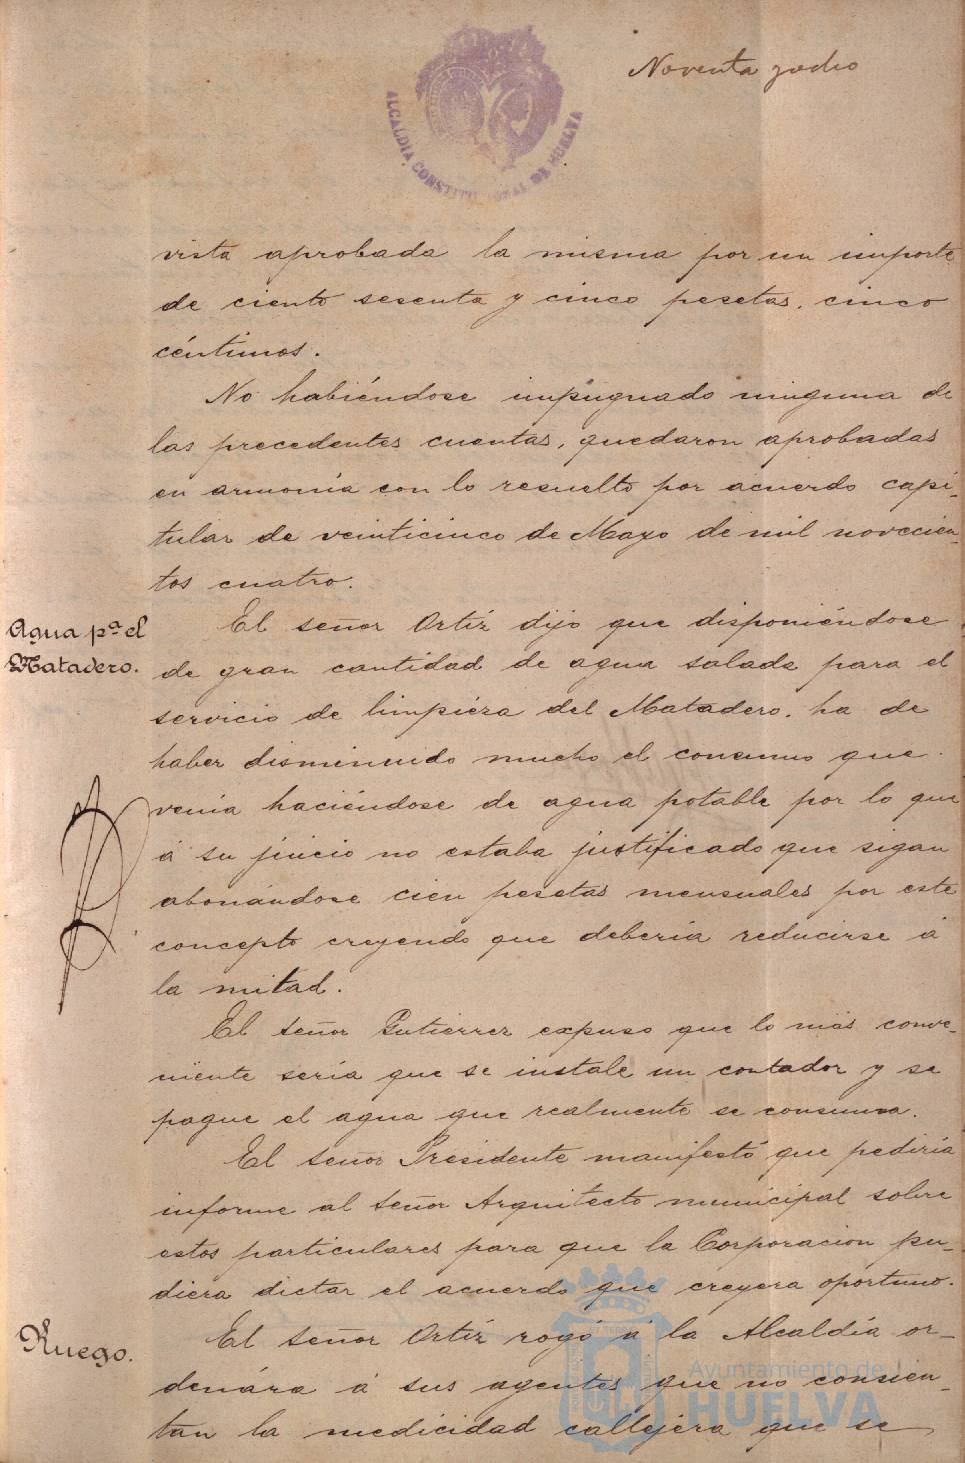 Noventa y ocho
ALCALDIA CONSTITUCIONAL DE HUELVA
vista aprobada la misma por un importe
de ciento sesenta y cinco pesetas, cinco
céntimos.
No habiéndose impugnado ninguna de
las precedentes cuentas, quedaron aprobadas
en armonía con lo resuelto por acuerdo capi-
tular de veinticinco de Mayo de mil novecien-
tos cuatro.
Agua pª el
Matadero.
El señor Ortíz dijo que disponiéndose
de gran cantidad de agua salada para el
servicio de limpieza del Matadero, ha de
haber disminuido mucho el consumo que
venía haciéndose de agua potable por lo que
á su juicio no estaba justificado que sigan
abonándose cien pesetas mensuales por este
concepto creyendo que debería reducirse á
la mitad.
El señor Gutiérrez expuso que lo más conve-
niente sería que se instale un contador y se
pague el agua que realmente se consuma.
El señor Presidente manifestó que pediría
informe al señor Arquitecto municipal sobre
estos particulares para que la Corporación pu-
diera dictar el acuerdo que creyera oportuno.
Ruego.
El señor Ortíz rogó á la Alcaldía or-
denára á sus agentes que no consien-
tan la medicidad callejera que se
Ayuntamiento de
HUELVA